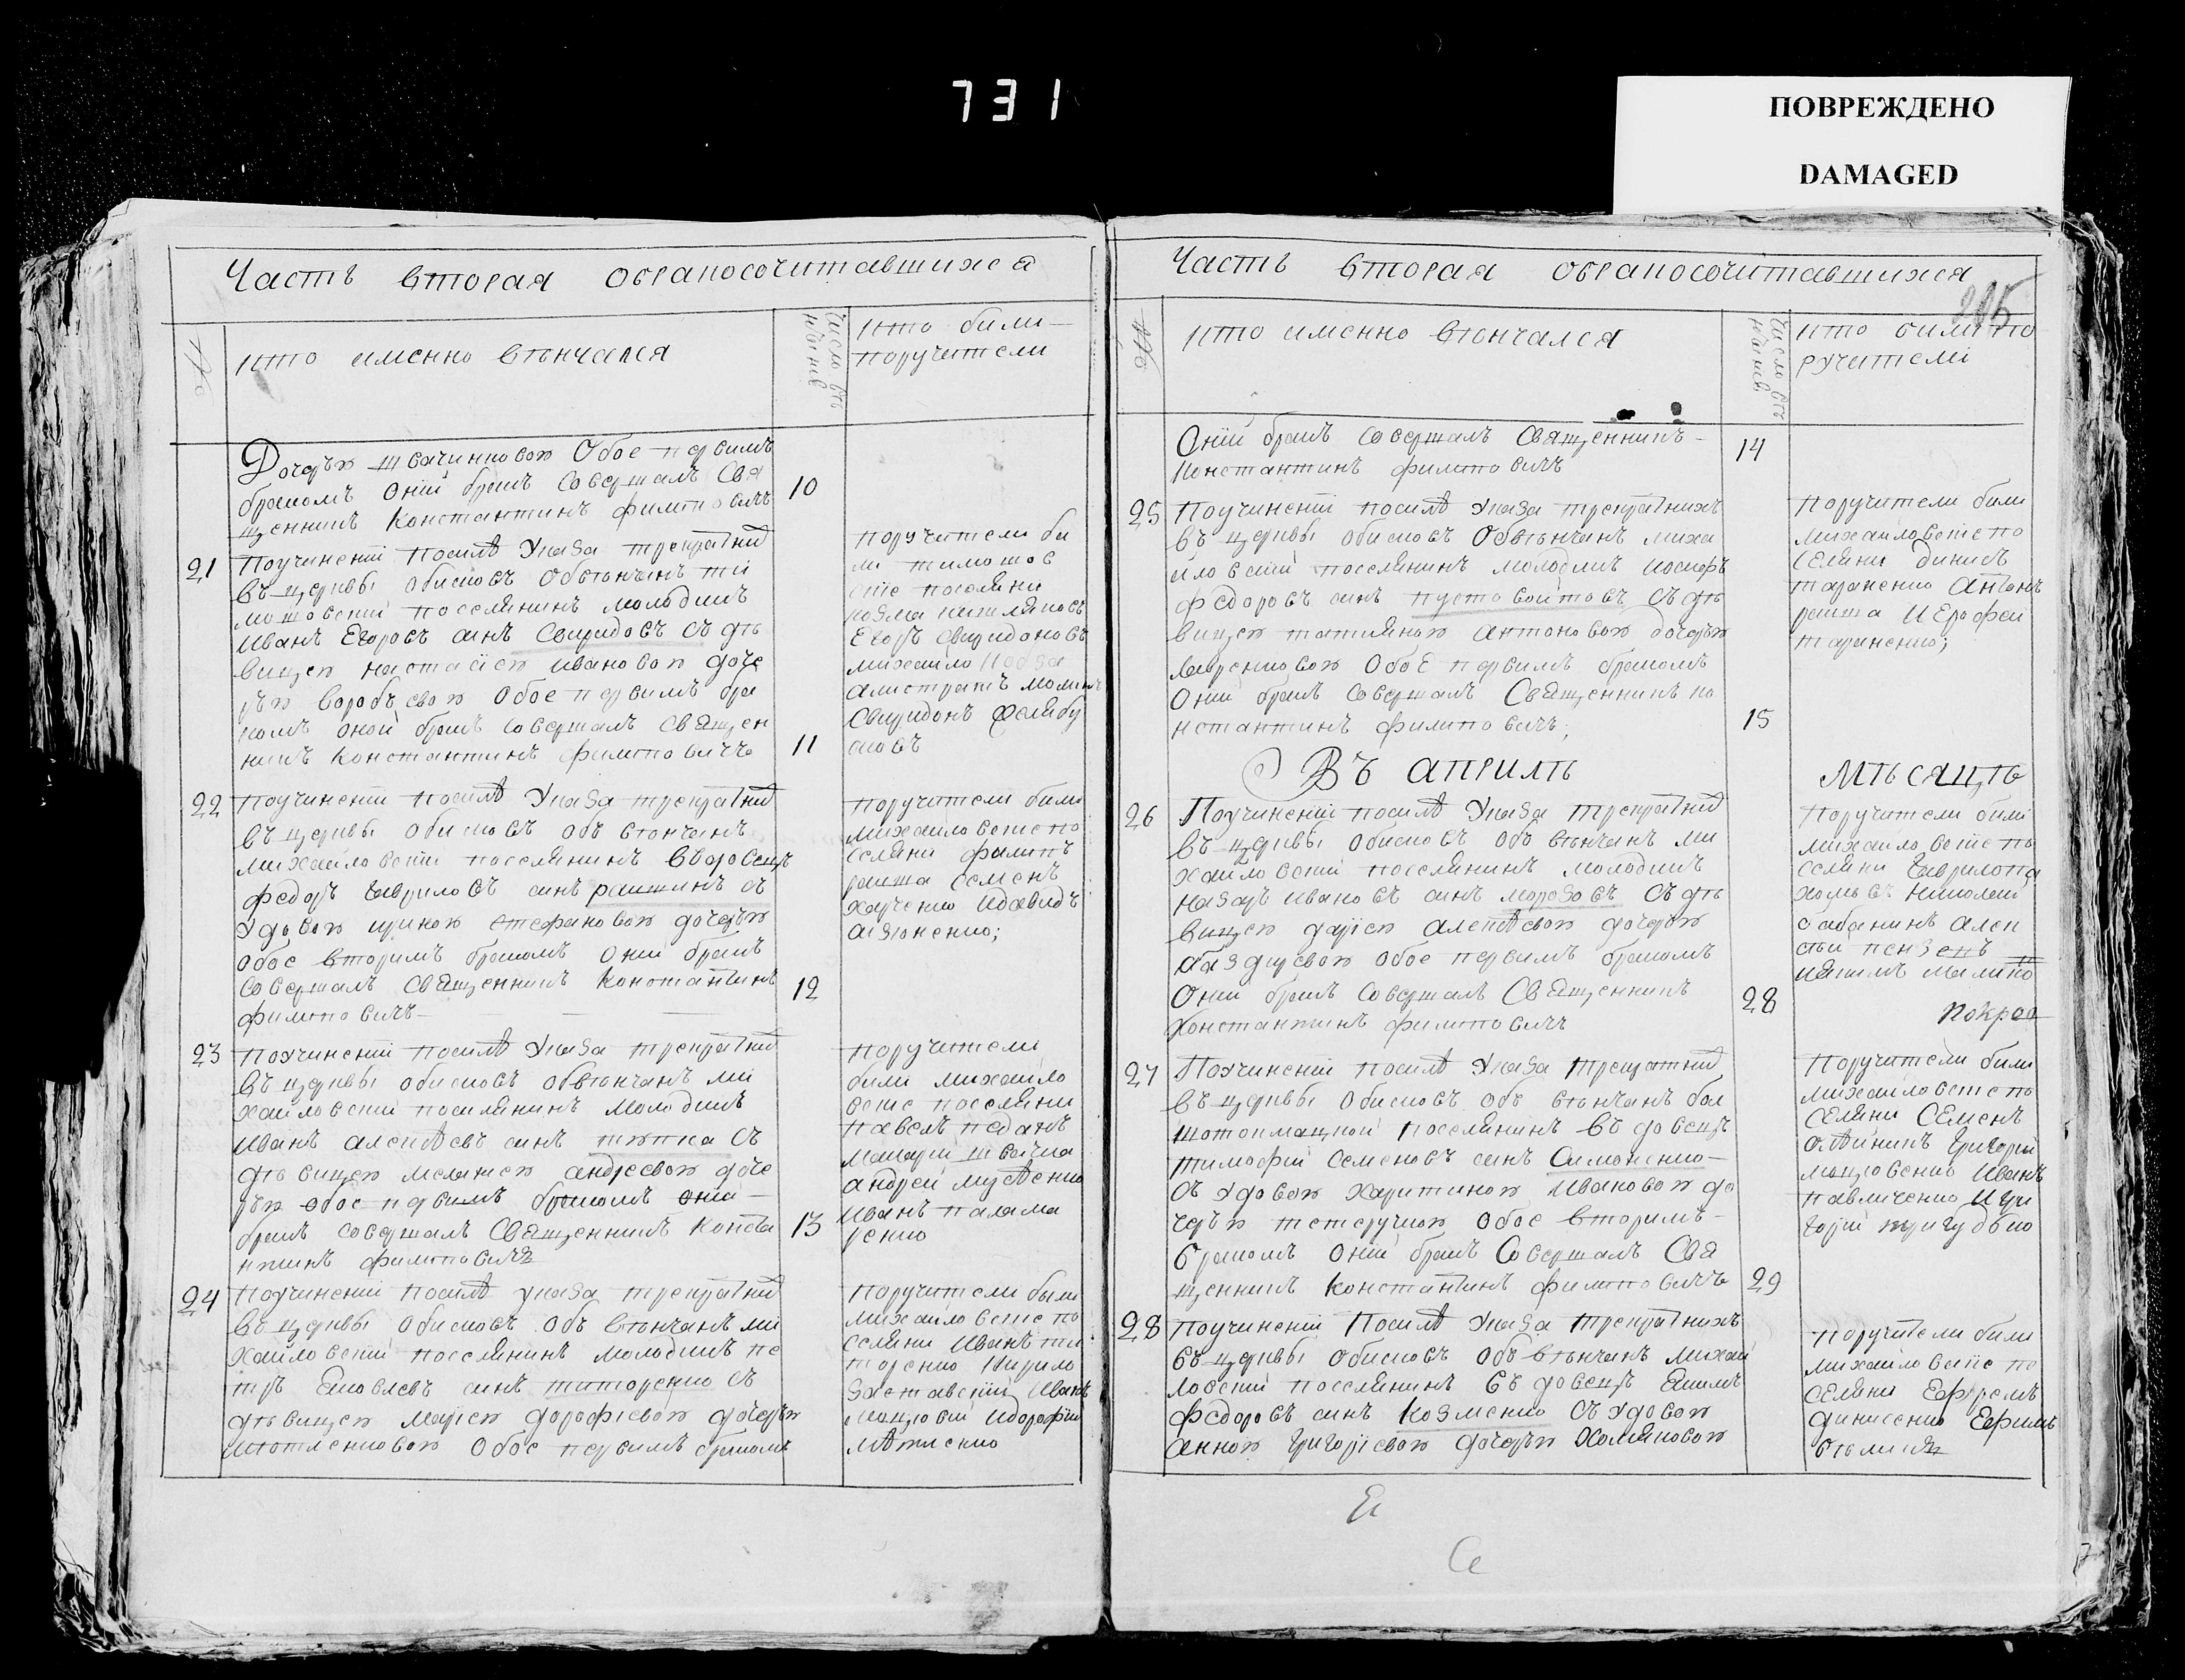 731
ПОВРЕЖДЕНО
DAMAGED
Часть вторая обракосочитавшихся
№
кто именно вѣнчался
число въ
кто били
поручители
Дочерю Обое первимъ
бракомъ Оній бракъ совершалъ Свя
щенникъ Константинъ филипповичъ
10
21
Поучиненій посилѣ Указа трекратній
въ церквы обисковъ Обвѣнчанъ ти
мошовскій поселянинъ молодикъ
Иванъ Егоровъ синъ Свиридовъ съ дѣ
вицею настасіею ивановою доче
рю воробъевою Обое первимъ бра
комъ оной бракъ совершалъ Священ
никъ Константинъ филипповичъ
11
поручители би
ли тимошов
скіе поселяни
козма
Егоръ Свиридоновъ
михайло
Свиридонъ
22
поучиненій посилѣ Указа трекратній
въ церквы обисковъ объ вѣнчанъ
михайловскій поселянинъ въдовецъ
федоръ гавриловъ синъ ракшинъ съ
удовою ириною стефановою дочерю
обое вторимъ бракомъ оній бракъ
совершалъ Священникъ Константинъ
филипповичъ
12
поручители били
михайловскіе по
селяни филипъ
ракша семенъ
харченко идавидъ
23
поучиненій посилѣ Указа трекратній
въ церквы обисковъ обвѣнчанъ ми
хайловскій поселянинъ молодикъ
иванъ алексѣевъ синъ тютка съ
дѣвицею меланіею андреевою доче
рю обое первимъ бракомъ оній
бракъ совершалъ Священникъ Конста
нтинъ филипповичъ
13
поручители
били михайло
вскіе поселяни
павелъ
макарій швачка
андрей
иванъ палама
ренко
24
поучиненій посилѣ указа трекратній
въ церквы обисковъ объ вѣнчанъ ми
хайловскій поселянинъ молодикъ пе
тръ Яковлевъ синъ титоренко съ
дѣвицею маріею дорофіевою дочерю
Обое первимъ бракомъ
поручители были
михайловскіе по
селяни Иванъ ти
торенко кирило
заставскій Иванъ
идорофій
Часть вторая обракосочитавшихся
№
кто именно вѣнчался
число въ
кто били по
ручителі
Оній бракъ совершалъ Священникъ
константинъ филипповичъ
14
25
поучиненій посилѣ Указа трекратнихъ
въ церквы обисковъ Обвѣнчанъ миха
йловскій поселянинъ молодикъ иосифъ
федоровъ синъ пустовойтовъ съ дѣ
вицею татияною антоновою дочерю
Обое первимъ бракомъ
Оній бракъ совершалъ Священникъ ко
нстантинъ филипповичъ;
15
поручители били
михайловскіе по
селяни динисъ
тараненко Антонъ
ракша И Ерофей
тараненко;
Въ априлѣ
мѣсяцѣ
26
Поучиненій посилѣ Указа трекратній
въ церквы обисковъ объ вѣнчанъ ми
хайловскій поселянинъ молодикъ
назаръ ивановъ синъ морозовъ съ дѣ
вицею даріею алексѣевою дочерю
обое первимъ бракомъ
Оній бракъ совершалъ Священникъ
Константинъ филипповичъ
28
поручители били
михайловскіе по
селяни
николай
27
Поучиненій посилѣ Указа трекратній
въ церквы обисковъ объ вѣнчанъ бол
шотокмацкой поселянинъ въдовецъ
тимофій семеновъ синъ Симоненко
съ удовою харитиною Ивановою до
черю тетеручкою обое вторимъ
бракомъ оній бракъ Совершалъ Свя
щенникъ константинъ филипповичъ
29
поручители били
михайловскіе по
Селяни Семенъ
олѣйникъ григорій
Иванъ
павличенко игри
горій
28
поучиненій посилѣ Указа трекратнихъ
въ церквы обисковъ объ вѣнчанъ михай
ловскій поселянинъ въдовецъ Якимъ
федоровъ синъ козменко съ удовою
анною григоріевою дочерю
поручители били
михайловскіе по
селяни Ефремъ
динисенко Ефимъ